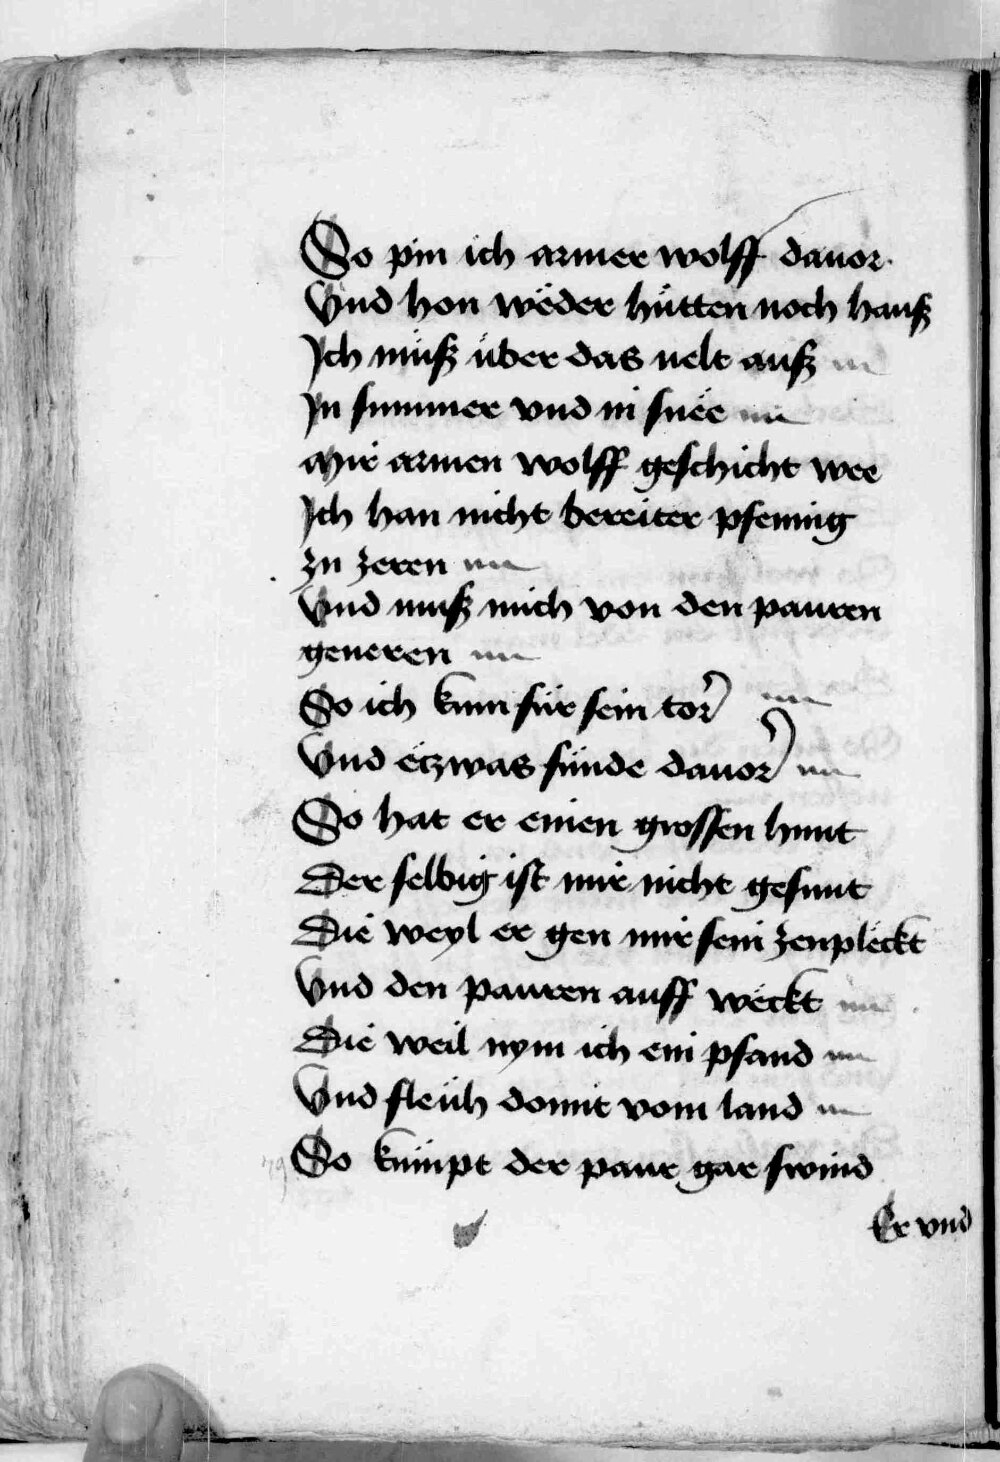 So pin ich armer wolff dauor.
Vnd hon wëder hütten noch hauß
Ich müß über das uelt auß
In summer vnd in snëe
Mir armen wolff geschicht wee
Ich han nicht bereiter pfening
zu zeren
Vnd muß mich von den pauren
generen
So ich kum für sein tor
Vnd ëtzwas fünde dauor
So hat er einen grossen hunt
Der selbig ist mir nicht gesunt
Die weyl er gen mir sein zen plëckt
Vnd den pauren auff wëckt
Die weil nym ich ein pfand
Vnd fleüh domit vom land
So kümpt der paur gar swind
Er vnd